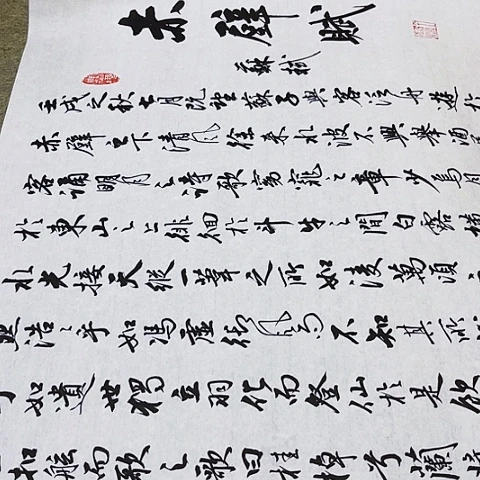 赤壁賦
蘇軾
壬戌之秋七月既望蘇子與客泛舟遊於
赤壁之下清風徐來水波不興舉酒
客誦明月之詩歌窈窕之章少焉月
於東山之上徘徊於斗牛之間白露橫
水光接天縱一葦之所如凌萬頃
浩浩乎如馮虛御風而不知其所
如遺世獨立羽化而登仙於是飲
扣舷而歌之歌曰桂棹兮蘭槳